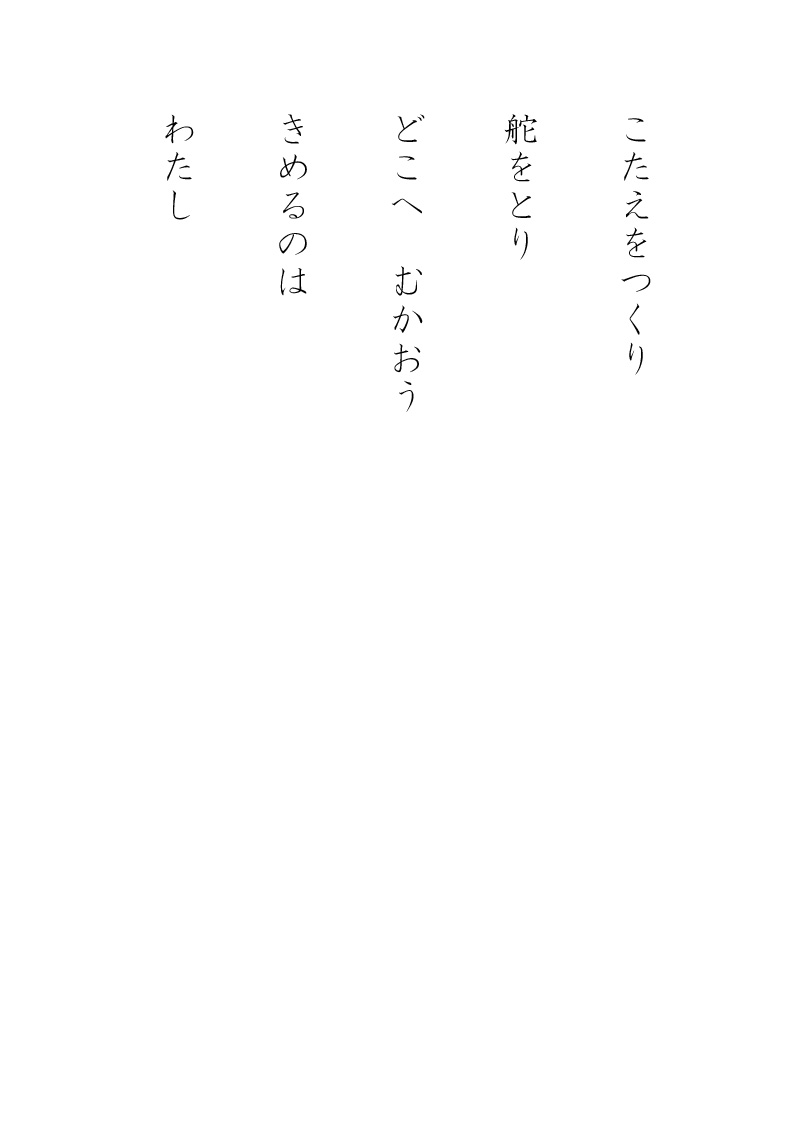 こたえをつくり
舵をとり
どこへ　むかおう
きめるのは
わたし